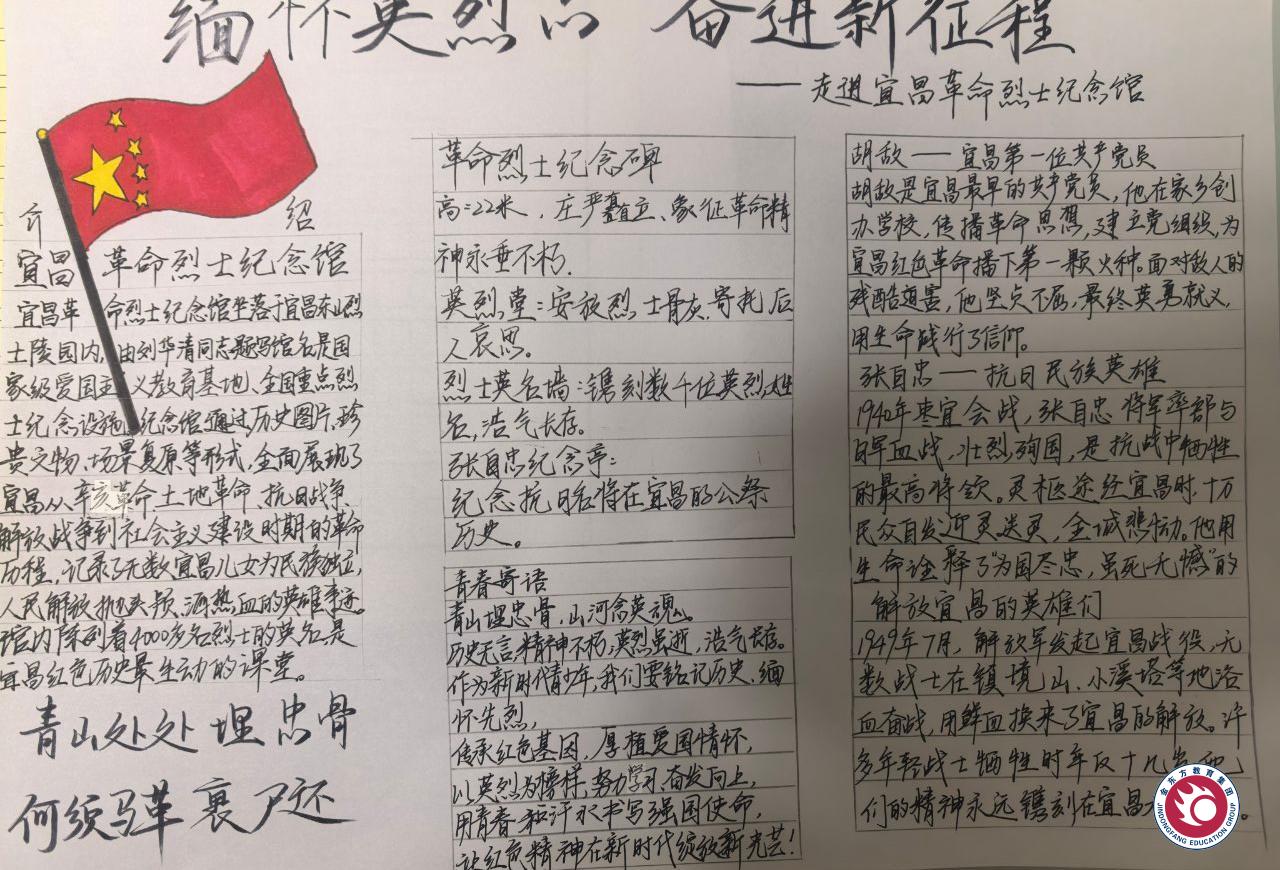 缅怀英烈志 奋进新征程
——走进宜昌革命烈士纪念馆
介 绍
宜昌 革命烈士纪念馆
宜昌革 命烈士纪念馆坐落于宜昌东山烈
士陵园内,由刘华清同志题写馆名是国
家级爱国主 义教育基地、全国重点烈
士纪念设施。纪念馆通过历史图片、珍
贵文物、场景复原等形式,全面展现了
宜昌从辛亥革命土地革命、抗日战争、
解放战争到社会主义建设时期的革命
历程,记录了无数宜昌儿女为民族独立,
人民解放抛头颅、洒热血的英雄事迹。
馆内陈列着4000多名烈士的英名是
宜昌红色历史最生动的课堂。
青山处处埋忠骨
何须马革裹尸还
革命烈士纪念碑
高=22米,庄严矗立、象征革命精
神永垂不朽.
英烈堂:安放烈士骨灰.寄托后
人哀思。
烈士英名墙:镌刻数千位英烈姓
名,浩气长存。
张自忠纪念亭:
纪念抗日名将在宜昌的公祭
历史。
青春寄语
青山埋忠骨,山河念英魂。
历史无言,精神不朽,英烈虽逝,浩气长存。
作为新时代青少年,我们要铭记历史、缅
怀先烈,
传承红色基因,厚植爱国情怀,
以英烈为榜样,努力学习,奋发向上,
用青春和汗水书写强国使命,
让红色精神在新时代绽放新光芒!
胡敌——宜昌第一位共产党员
胡敌是宜昌最早的共产党员,他在家乡创
办学校,传播革命思想,建立党组织,为
宜昌红色革命播下第一颗火种。面对敌人的
残酷迫害,他坚贞不屈,最终英勇就义,
用生命践行了信仰。
张自忠——抗日民族英雄
1940年枣宜会战,张自忠将军率部与
日军血战,壮烈殉国,是抗战中牺牲
的最高将领。灵柩途经宜昌时,十万
民众自发迎灵送灵,全城悲恸。他用
生命诠释了"为国尽忠,虽死无憾"的
解放宜昌的英雄们
1949年7月,解放军发起宜昌战役,无
数战士在镇境山、小溪塔等地浴
血奋战,用鲜血换来了宜昌的解放。许
多年轻战士牺牲时年仅十几岁而
们的精神永远镌刻在宜昌
金东方教育集团
JINDONGFANG EDUCATION GROUP